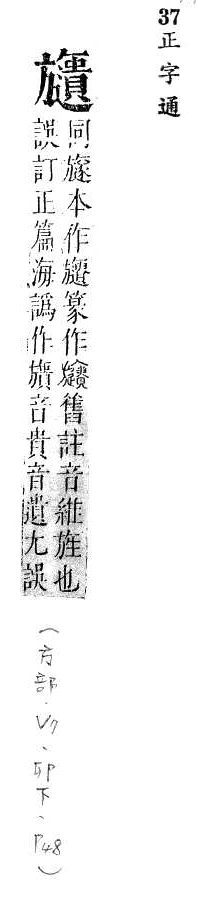 37正字通
同旞本作篆作舊註音維旌也
誤訂正篇海譌作音貴音遺尤誤
（方部·V7、卯下、P48）